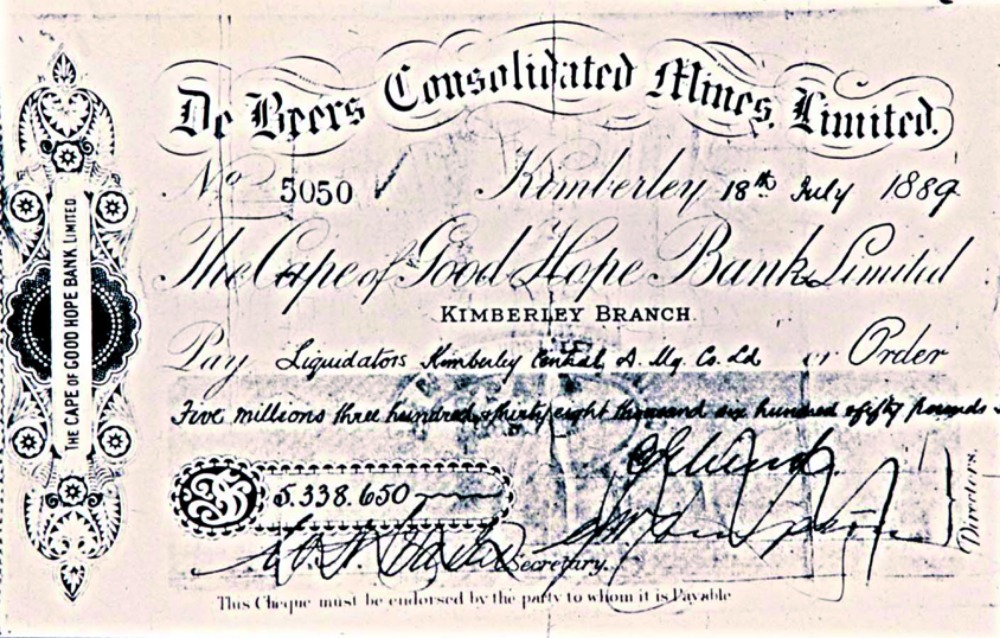 De Beers Consolidated Mines, Limited.
No 5050 Kimberley 18th July 1889
The Cape of Good Hope Bank Limited
KIMBERLEY BRANCH.
Pay Liquidators Kimberley Central D. Mg. Co. Ld or Order
Five millions three hundred & thirty eight thousand six hundred & fifty pounds
£ 5.338.650
Directors.
Secretary.
This Cheque must be endorsed by the party to whom it is Payable
THE CAPE OF GOOD HOPE BANK LIMITED